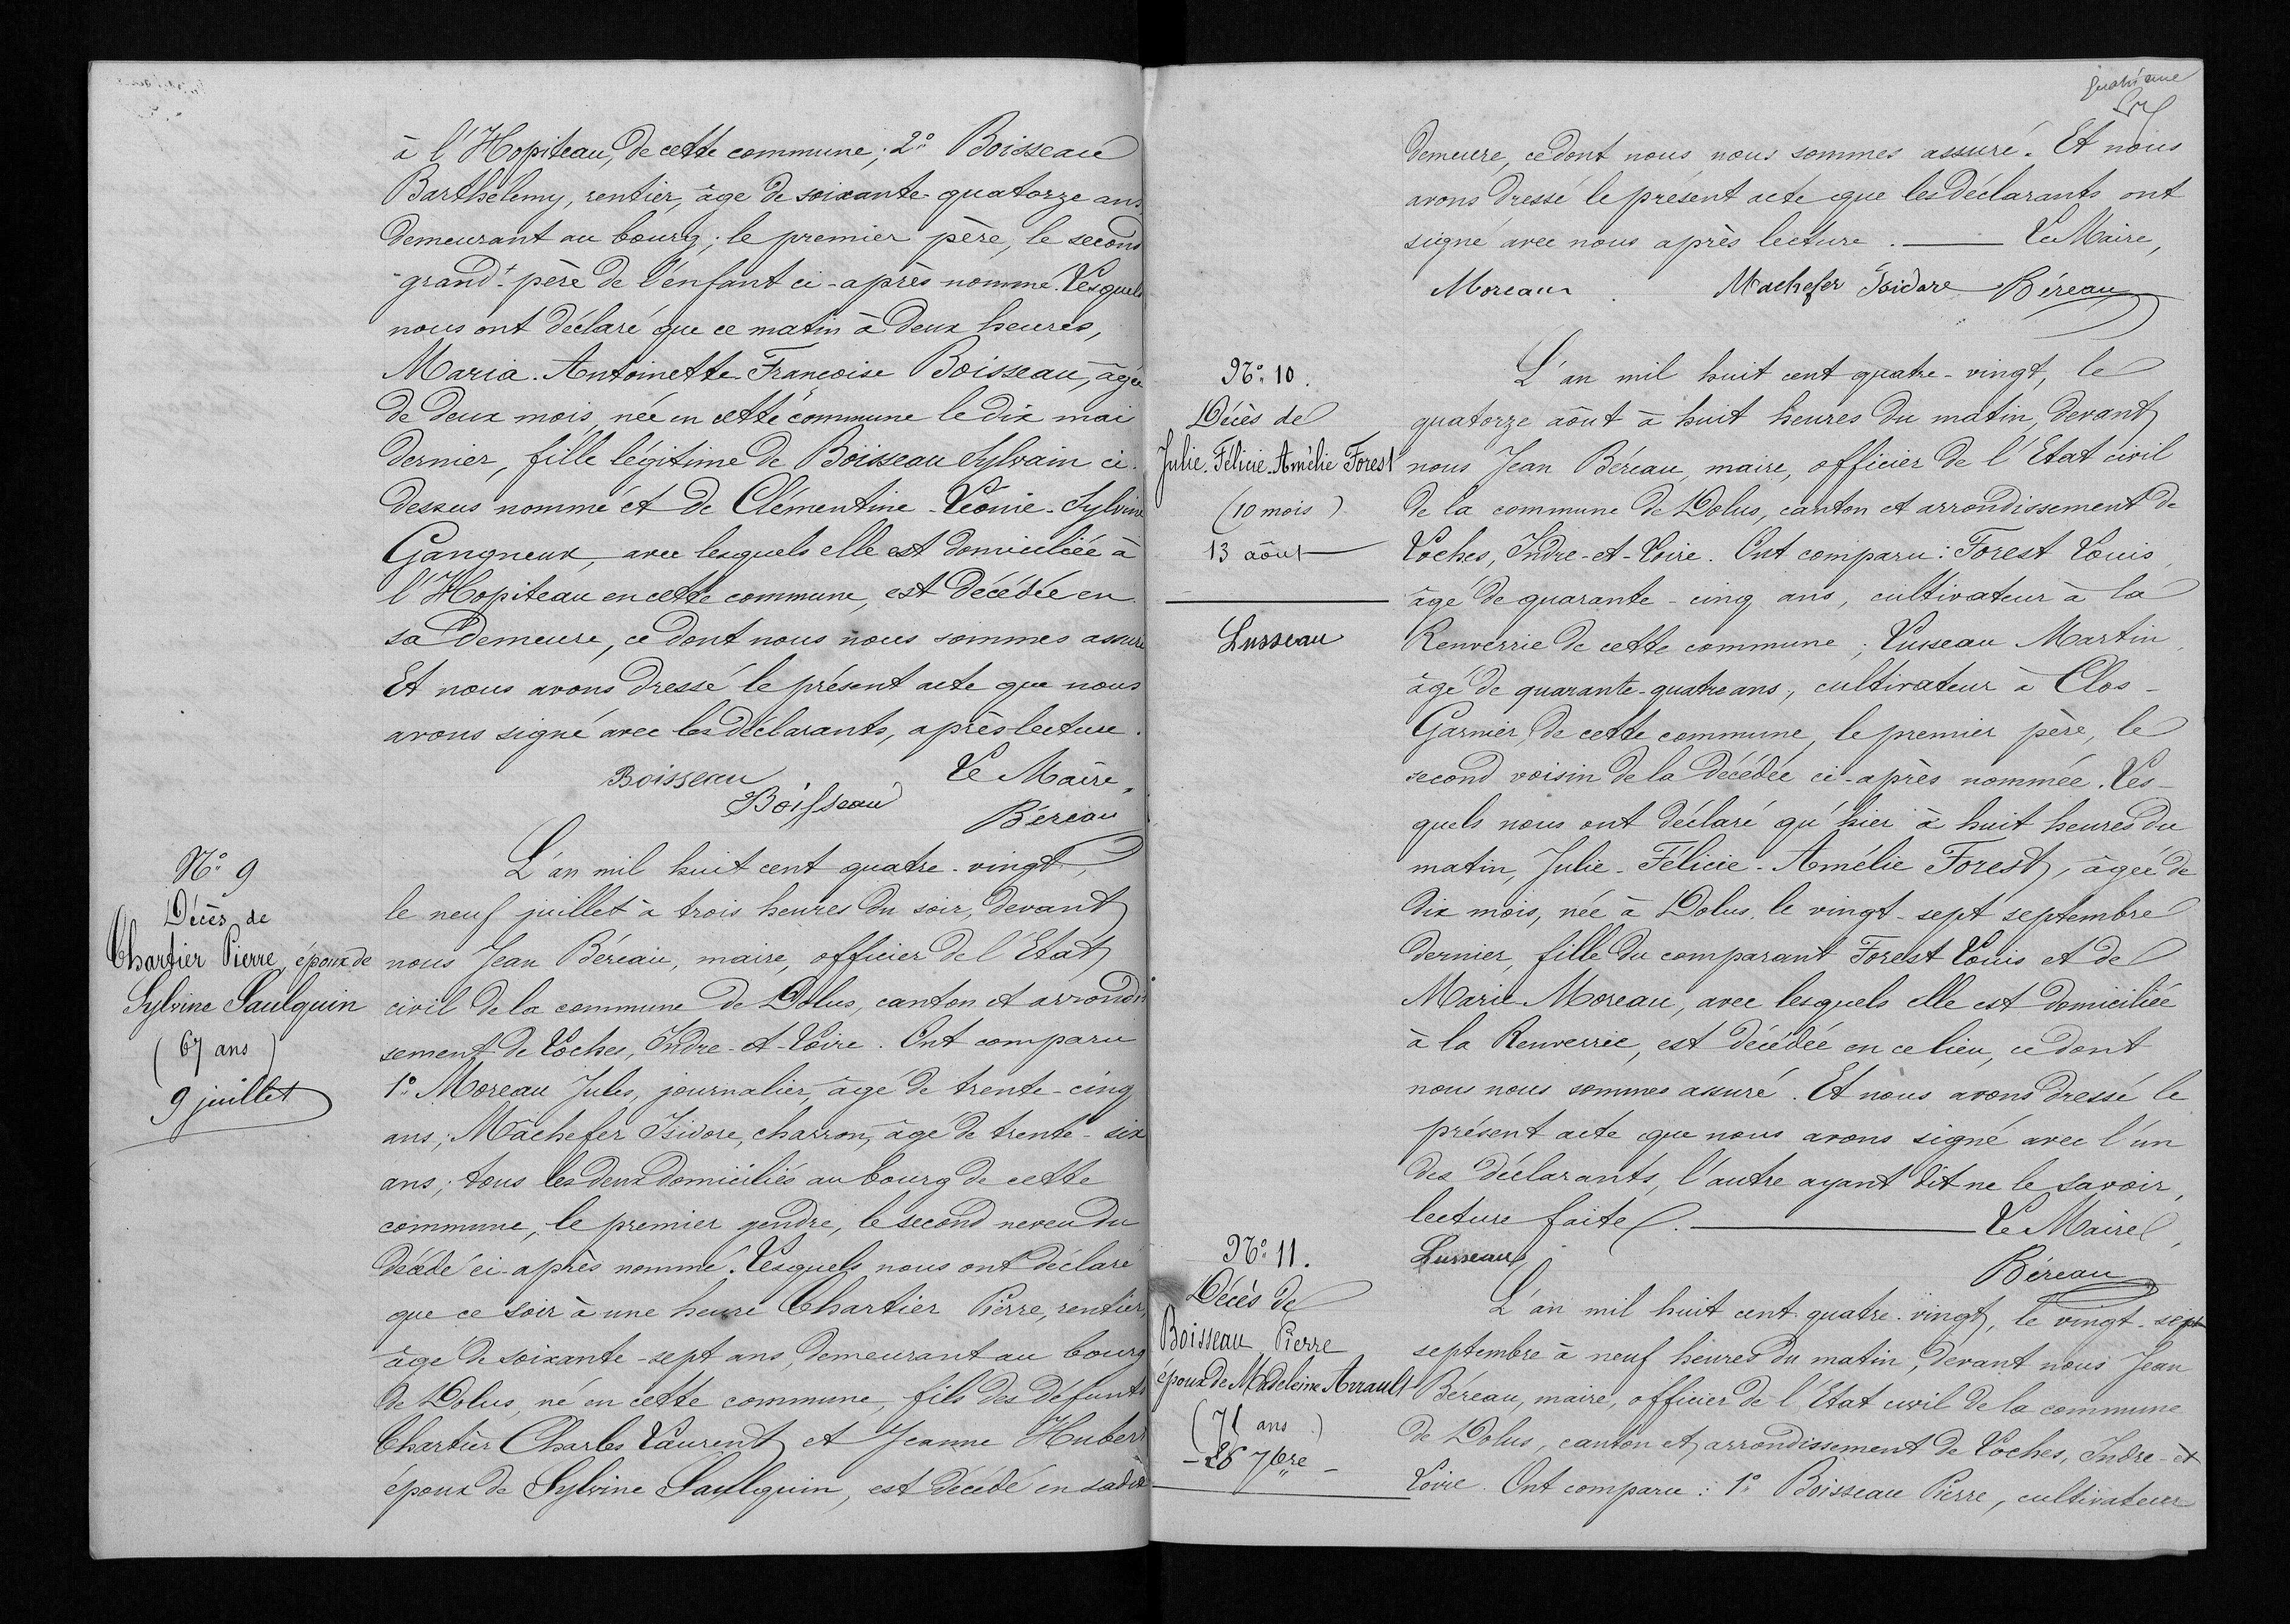 à l'Hopiteau, de cette commune; 2° Boisseau
Barthélemy, rentier, âgé de soixante-quatorze ans
demeurant au bourg; le premier père, le second
grand-père de l'enfant ci-après nommé. Lesquels
nous ont déclaré que ce matin à deux heures,
Maria-Antoinette-Françoise Boisseau, âgée
de deux mois, née en cette commune le dix mai
dernier, fille légitime de Boisseau Sylvain ci-
dessus nommé et de Clémentine-Léonie-Sylvine
Gangneux, avec lesquels elle est domiciliée à
l'Hopiteau en cette commune, est décédée en
sa demeure, ce dont nous nous sommes assuré
Et nous avons dressé le présent acte que nous
avons signé avec les déclarants, après lecture.
Boisseau Le Maire,
Boisseau Béreau
N° 9
Décès de
Chartier Pierre, époux de
Sylvine Saulquin
(67 ans)
9 juillet
L'an mil huit cent quatre-vingt,
le neuf juillet à trois heures du soir, devant
nous Jean Béreau, maire, officier de l'Etat
civil de la commune de Dolus, canton et arrondis
sement de Loches, Indre-et-Loire. Ont comparu
1° Moreau Jules, journalier, âgé de trente-cinq
ans; Mâchefer Isidore, charron, âgé de trente-six
ans; tous les deux domiciliés au bourg de cette
commune, le premier gendre, le second neveu du
décédé ci-après nommé. Lesquels nous ont déclaré
que ce soir à une heure Chartier Pierre, rentier,
âgé de soixante-sept ans, demeurant au bourg
de Dolus, né en cette commune, fils des défunts
Chartier Charles Laurent et Jeanne Hubert
époux de Sylvine Saulquin, est décédé en sadite
quatrième
demeure, ce dont nous nous sommes assuré. Et nous
avons dressé le présent acte que les déclarants ont
signé avec nous après lecture. Le Maire,
Moreau Machefer Isidore Béreau
N° 10.
Décès de
Julie-Félicie-Amélie Forest
(10 mois)
13 août
Lusseau
L'an mil huit cent quatre-vingt, le
quatorze août à huit heures du matin, devant
nous Jean Béreau, maire, officier de l'Etat civil
de la commune de Dolus, canton et arrondissement de
Loches, Indre-et-Loire. Ont comparu: Forest Louis,
âgé de quarante-cinq ans, cultivateur à la
Renverrie de cette commune; Lusseau Martin,
âgé de quarante-quatre ans, cultivateur à Clos-
Garnier, de cette commune, le premier père, le
second voisin de la décédée ci-après nommée. Les-
quels nous ont déclaré qu'hier à huit heures du
matin, Julie-Félicie-Amélie Forest, âgée de
dix mois, née à Dolus, le vingt-sept septembre
dernier, fille du comparant Forest Louis et de
Marie Moreau, avec lesquels elle est domiciliée
à la Renverrie, est décédée en ce lieu, ce dont
nous nous sommes assuré. Et nous avons dressé le
présent acte que nous avons signé avec l'un
des déclarants, l'autre ayant dit ne le savoir,
lecture faite. Le Maire,
Lusseau Béreau
N° 11.
Décès de
Boisseau Pierre
époux de Madeleine Arrault
(71 ans)
- 26 7bre -
L'an mil huit cent quatre-vingt, le vingt-sept
septembre à neuf heures du matin, devant nous Jean
Béreau, maire, officier de l'Etat civil de la commune
de Dolus, canton et arrondissement de Loches, Indre-et
Loire. Ont comparu: 1° Boisseau Pierre, cultivateur